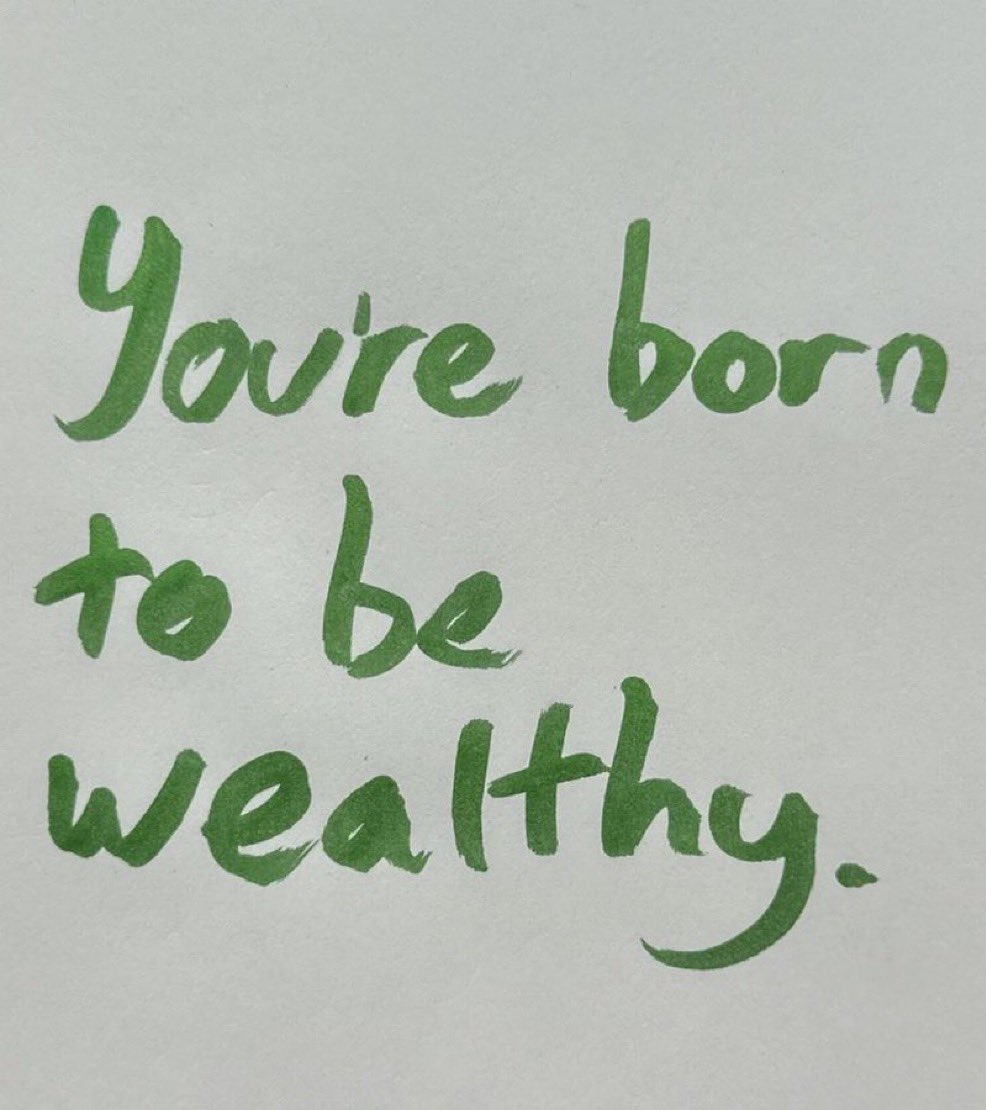 You're born
to be
wealthy.